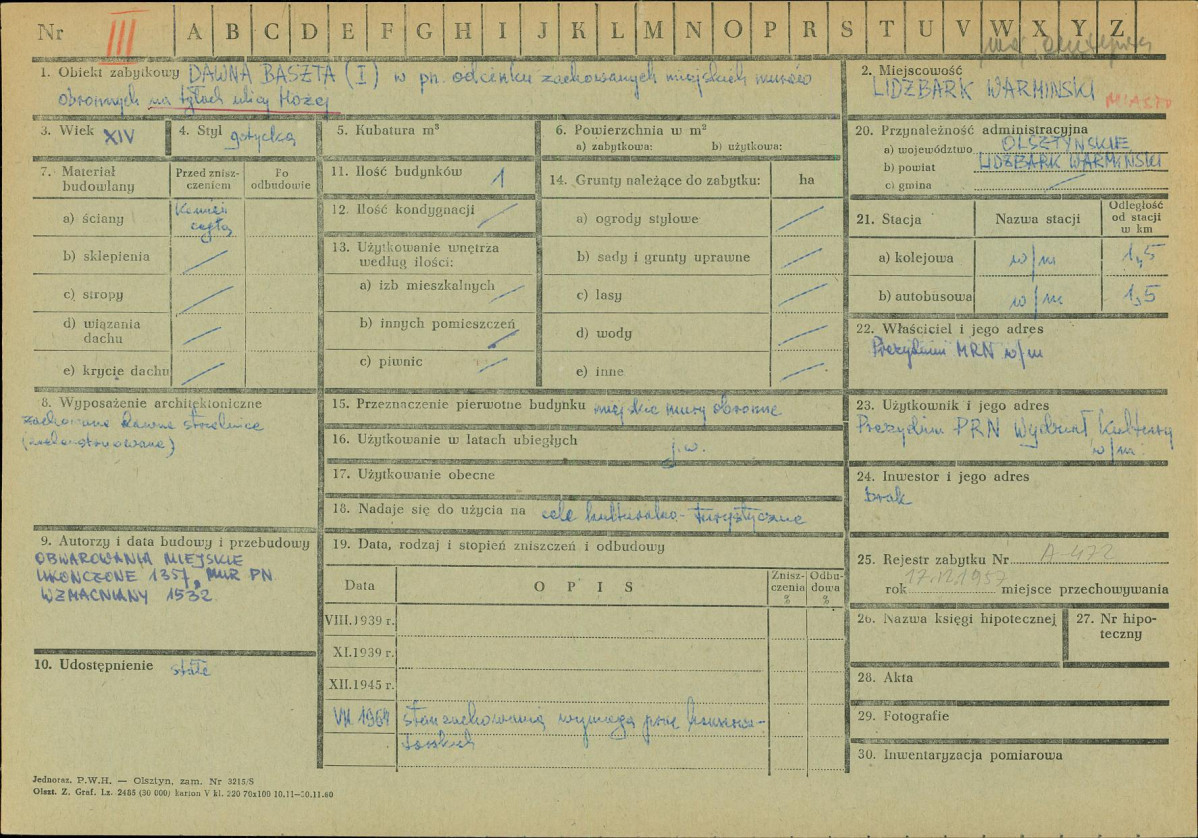 Nr III A B C D E F G H I J K L M N O P R S T U V W X Y Z
1. Obiekt zabytkowy DAWNA BASZTA (I) w pn. odcinku zachowanych miejskich murów
obronnych na tyłach ulicy Hożej
2. Miejscowość
LIDZBARK WARMIŃSKI MIASTO
3. Wiek XIV
4. Styl gotycka
5. Kubatura m³
6. Powierzchnia w m²
a) zabytkowa: b) użytkowa:
20. Przynależność administracyjna
a) województwo OLSZTYŃSKIE
b) powiat LIDZBARK WARMIŃSKI
c) gmina
7. Materiał
budowlany
Przed znisz-
czeniem
Po
odbudowie
a) ściany
kamień
cegła
b) sklepienia
c) stropy
d) wiązania
dachu
e) krycie dachu
11. Ilość budynków 1
12. Ilość kondygnacji
13. Użytkowanie wnętrza
według ilości:
a) izb mieszkalnych
b) innych pomieszczeń
c) piwnic
14. Grunty należące do zabytku: ha
a) ogrody stylowe
b) sady i grunty uprawne
c) lasy
d) wody
e) inne
21. Stacja Nazwa stacji
Odległość
od stacji
w km
a) kolejowa w/m 1,5
b) autobusowa w/m 1,5
22. Właściciel i jego adres
Prezydium MRN w/m
8. Wyposażenie architektoniczne
zachowane dawne strzelnice
15. Przeznaczenie pierwotne budynku miejskie mury obronne
16. Użytkowanie w latach ubiegłych j.w.
17. Użytkowanie obecne
18. Nadaje się do użycia na cele kulturalno-turystyczne
23. Użytkownik i jego adres
Prezydium PRN Wydział Kultury
w/m.
24. Inwestor i jego adres
brak
9. Autorzy i data budowy i przebudowy
OBWAROWANIA MIEJSKIE
UKOŃCZONE 1357, MUR PN.
WZMACNIANY 1532.
10. Udostępnienie stałe
19. Data, rodzaj i stopień zniszczeń i odbudowy
Data O P I S
Znisz-
czenia
%
Odbu-
dowa
%
VIII.1939 r.
XI.1939 r.
XII.1945 r.
VII 1964 stan zachowania wymaga prac konserwa-
torskich
25. Rejestr zabytku Nr A-472
rok 17.12.1957 miejsce przechowywania
26. Nazwa księgi hipotecznej
27. Nr hipo-
teczny
28. Akta
29. Fotografie
30. Inwentaryzacja pomiarowa
Jednoraz. P.W.H. — Olsztyn, zam. Nr 3215/S
Olszt. Z. Graf. Lz. 2485 (30 000) karton V kl. 220 70x100 10.11—30.11.60